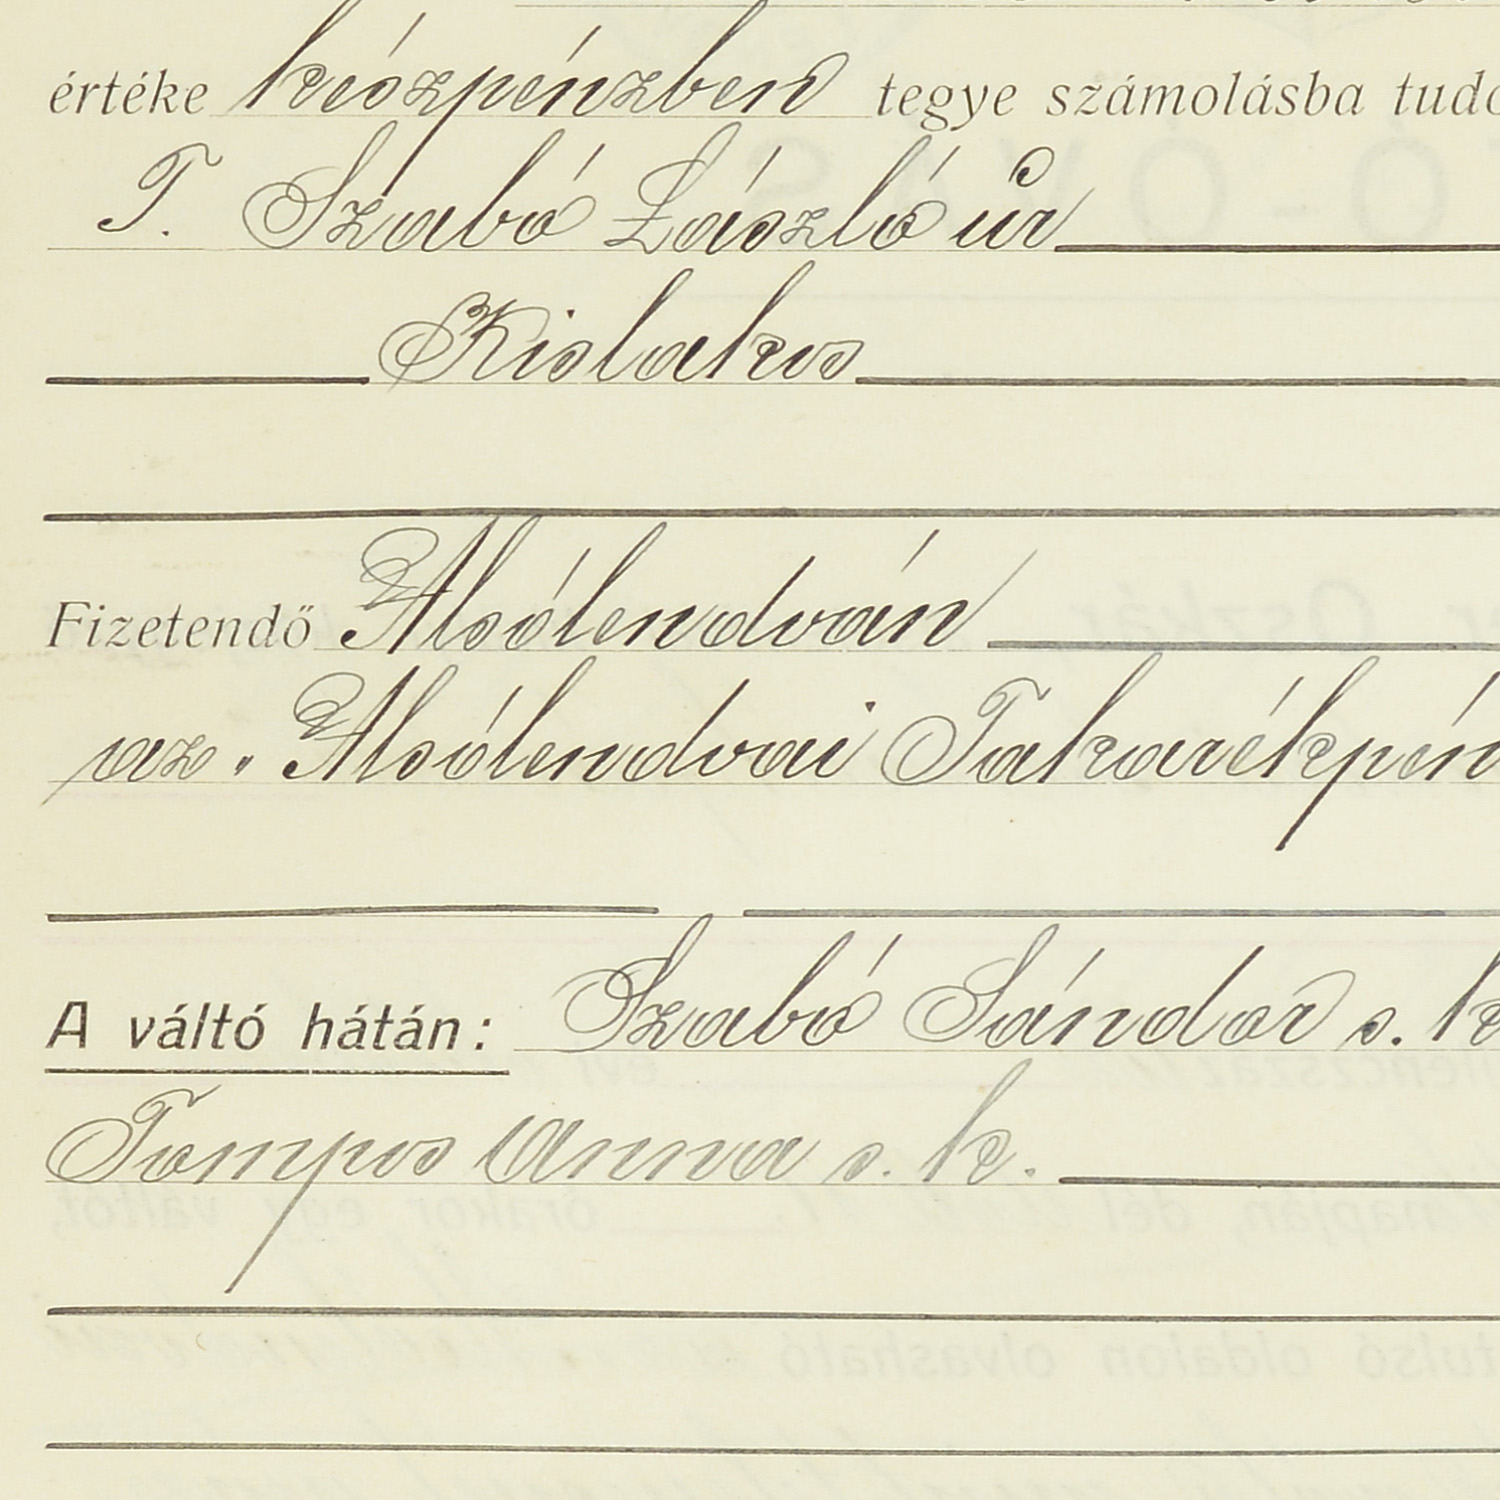 értéke készpénzben tegye számolásba
T. Szabó László úr
Kislakos
Fizetendő Alsólendván
az „Alsólendvai
A váltó hátán: Szabó Sándor s.
Tompos Anna s. k.